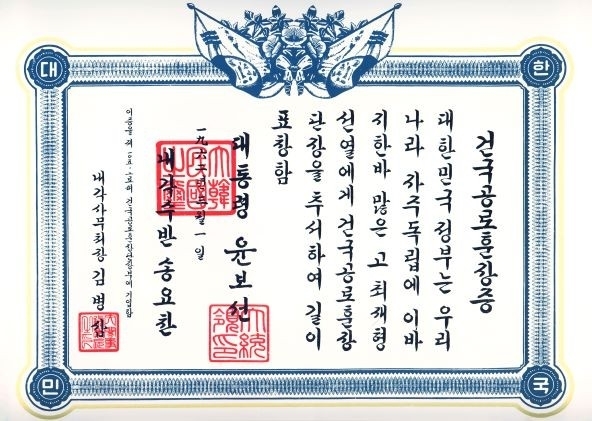 대한
민국
건국공로훈장증
대한민국 정부는 우리
나라 자주독립에 이바
지한바 많은 고 최재형
선열에게 건국공로훈장
단장을 추서하여 길이
표창함
대통령 윤보선
大統領印
大韓民國之璽
一九六二년三월一일
내각수반 송요찬
이증을 제 호로써 건국공로훈장부에 기입함
내각사무처장 김병삼